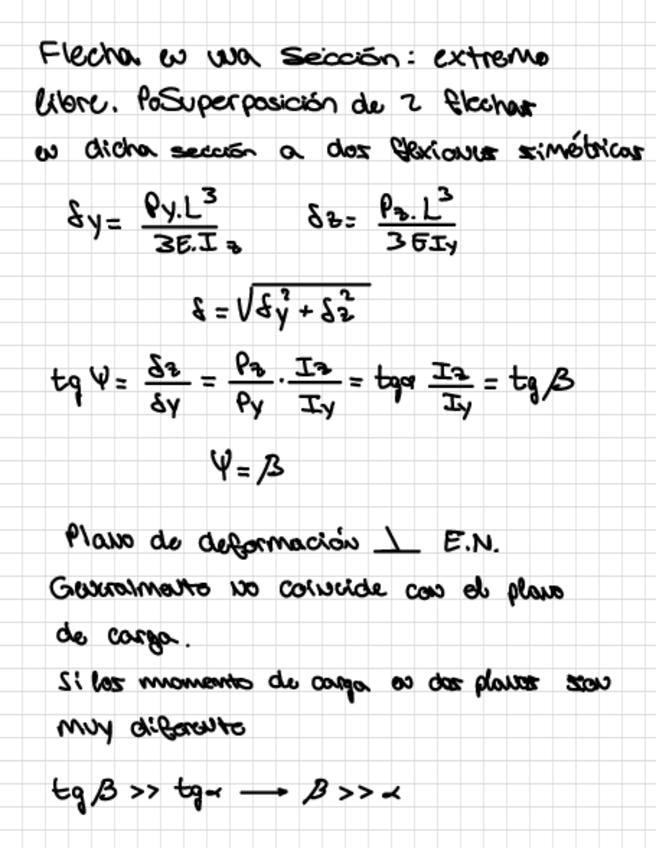 Flecha en una sección: extremo
libre. PoSuperposición de 2 flechas
en dicha sección a dos flexiones simétricas
δy = Py.L³/3E.Iz δz = Pz.L³/3EIy
δ = √(δy² + δz²)
tg Ψ = δz/δy = Pz/Py · Iz/Iy = tgα Iz/Iy = tg β
Ψ = β
Plano de deformación ⊥ E.N.
Generalmente no coincide con el plano
de carga.
Si los momento de carga en dos planos son
muy diferente
tg β >> tg α → β >> α